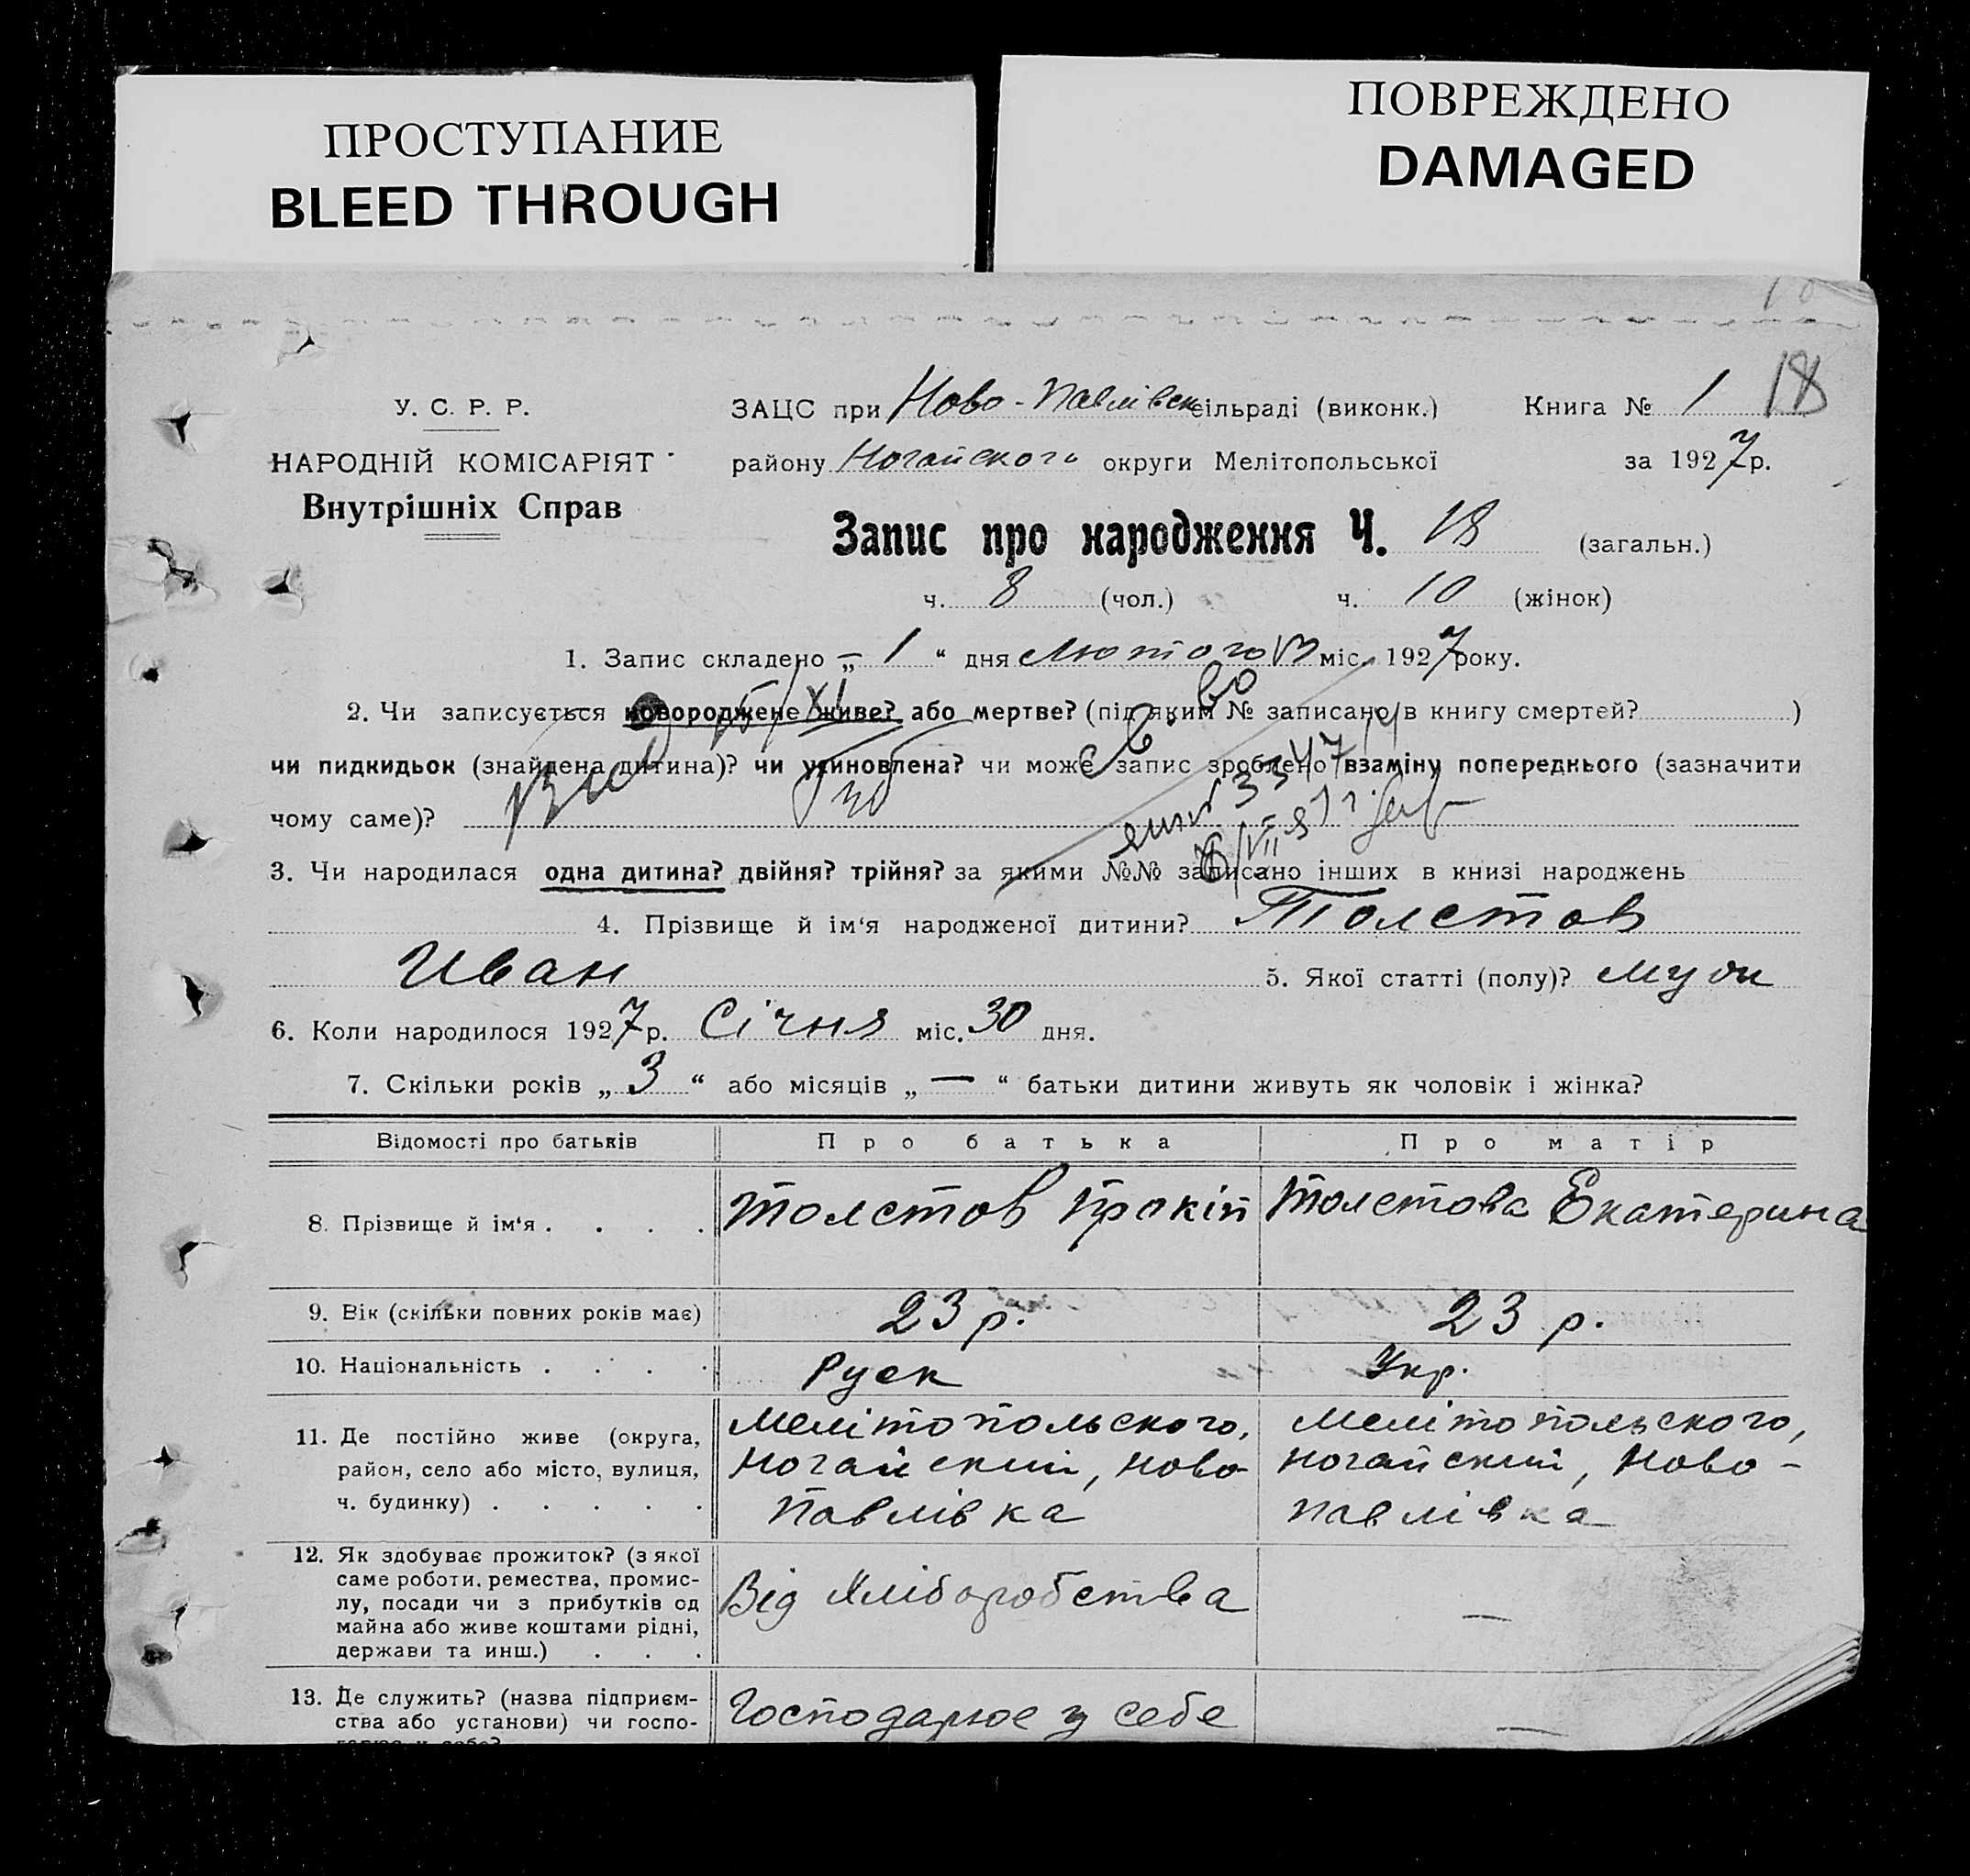 ПРОСТУПАНИЕ
BLEED THROUGH
ПОВРЕЖДЕНО
DAMAGED
18
У. С. Р. Р.
НАРОДНІЙ КОМІСАРІЯТ
Внутрішніх Справ
ЗАЦС при Ново-Павлівск сільраді (виконк.)
Книга № 1
району Ногайского округи Мелітопольської
за 1927 р.
Запис про народження Ч. 18 (загальн.)
ч. 8 (чол.) ч. 10 (жінок)
1. Запис складено „ 1 “ дня Лютого міс. 1927 року.
2. Чи записується новороджене живе? або мертве? (під яким № записано в книгу смертей? )
чи пидкидьок (знайдена дитина)? чи усиновлена? чи може запис зроблено взаміну попереднього (зазначити
чому саме)?
3. Чи народилася одна дитина? двійня? трійня? за якими №№ записано інших в книзі народжень
4. Прізвище й ім‘я народженої дитини? Толстов
Иван 5. Якої статті (полу)? муж
6. Коли народилося 1927 р. Січня міс. 30 дня.
7. Скільки років „ 3 “ або місяців „ — “ батьки дитини живуть як чоловік і жінка?
Відомості про батьків Про батька Про матір
8. Прізвище й ім‘я . . . . Толстов Прокіп Толстова Екатерина
9. Вік (скільки повних років має) 23 р. 23 р.
10. Національність . . . . Руск Укр.
11. Де постійно живе (округа, Мелітопольского, Мелітопольского,
район, село або місто, вулиця, Ногайский, Ново- Ногайский, Ново-
ч. будинку) . . . . . Павлівка Павлівка
12. Як здобуває прожиток? (з якої
саме роботи, ремества, промис-
лу, посади чи з прибутків од Від Хліборобства —
майна або живе коштами рідні,
держави та инш.) . . .
13. Де служить? (назва підприєм- Господарює у себе —
ства або установи) чи госпо-